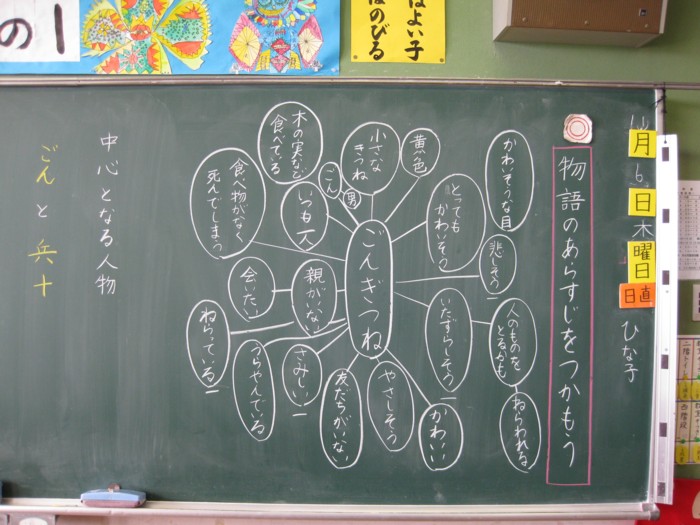 の1
よい子
はのびる
月
6
日
木
曜日
日直
ひな子
物語のあらすじをつかもう
かわいそうな目
悲しそう
人のものをとるかも
ねらわれる
黄色
とっても
かわいそう
いたずらしそう
かわいい
小さな
きつね
男
こん
ごんぎつね
やさしそう
友だちがいない
木の実など
食べている
いつも一人
親がいない
さみしい
食べ物がなく
死んでしまう
会いたい
うらやんでいる
ねらっている
中心となる人物
ごんと兵十